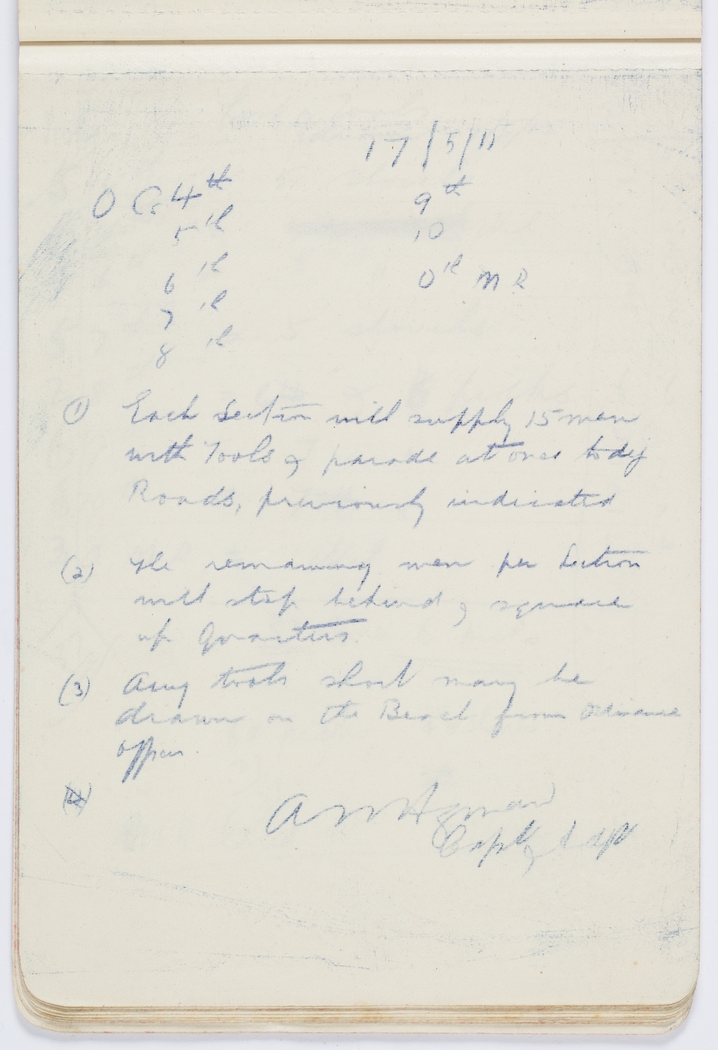 17/5/11
O Cs 4th 9th
5th 10
6th 0th M R
7th
8th
(1) Each Section will supply 15 men
with Tools & parade at once to dig
Roads, previously indicated
(2) The remaining men per Section
will stop behind & square
up Quarters.
(3) Any tools short may be
drawn on the Beach from Ordinance
Officer.
(4)
A M Hyman
Capt & Adjt